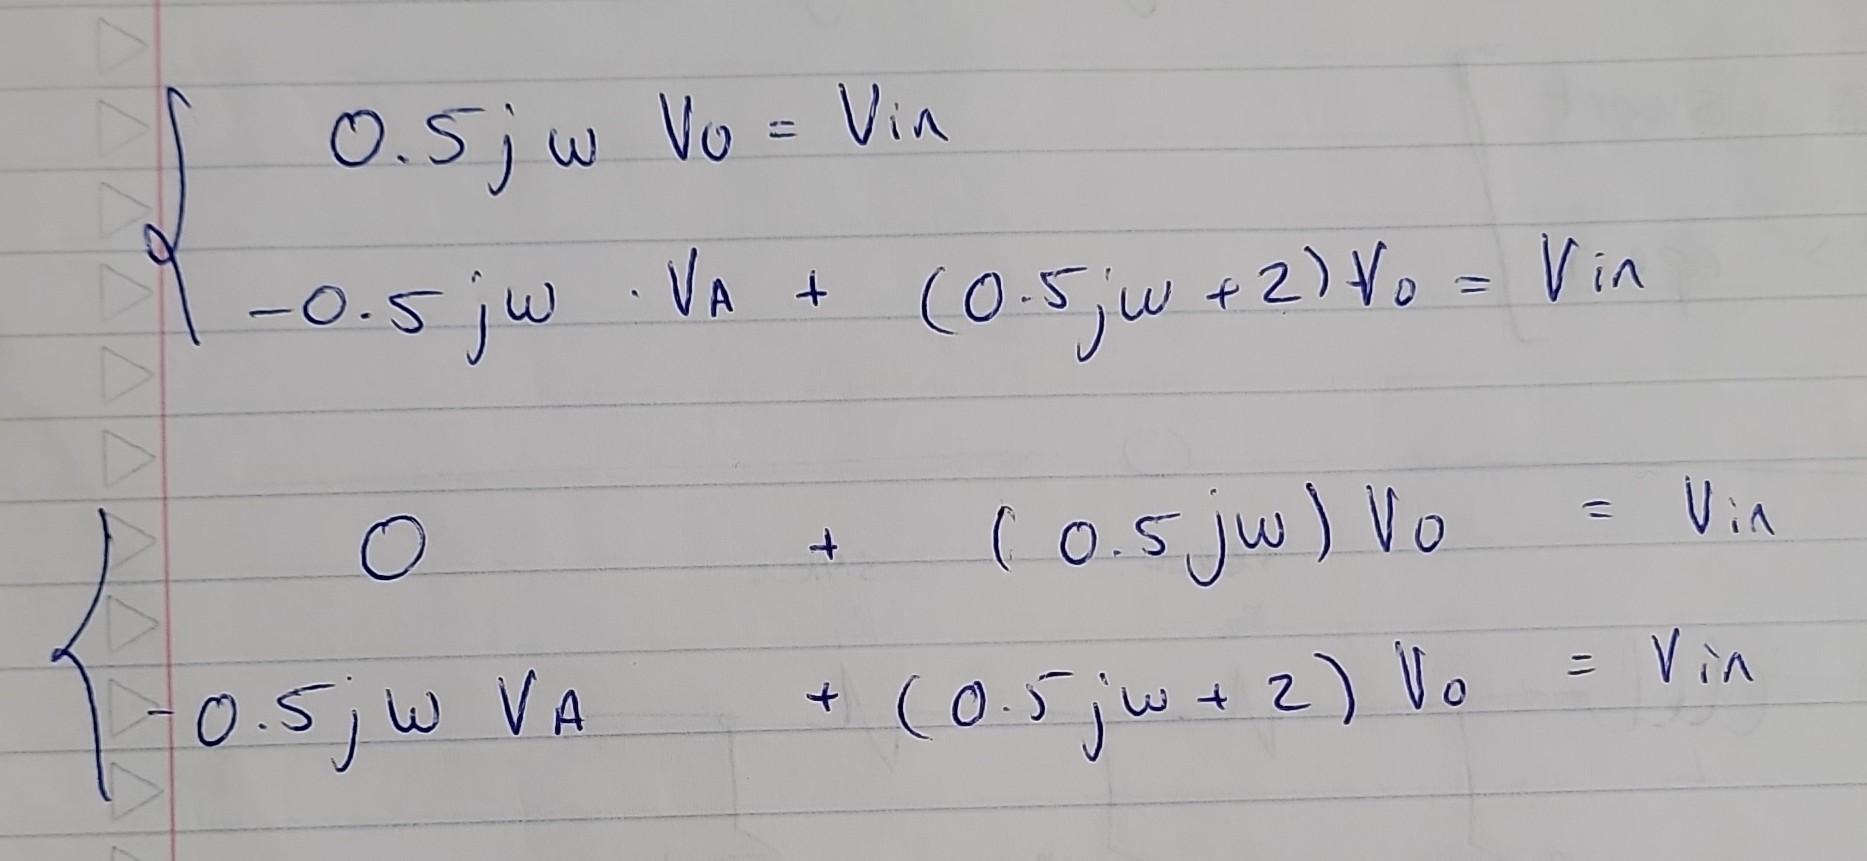 0.5jw Vo = Vin
-0.5jw · VA + (0.5jw + 2) Vo = Vin
0 + (0.5jw) Vo = Vin
-0.5jw VA + (0.5jw + 2) Vo = Vin